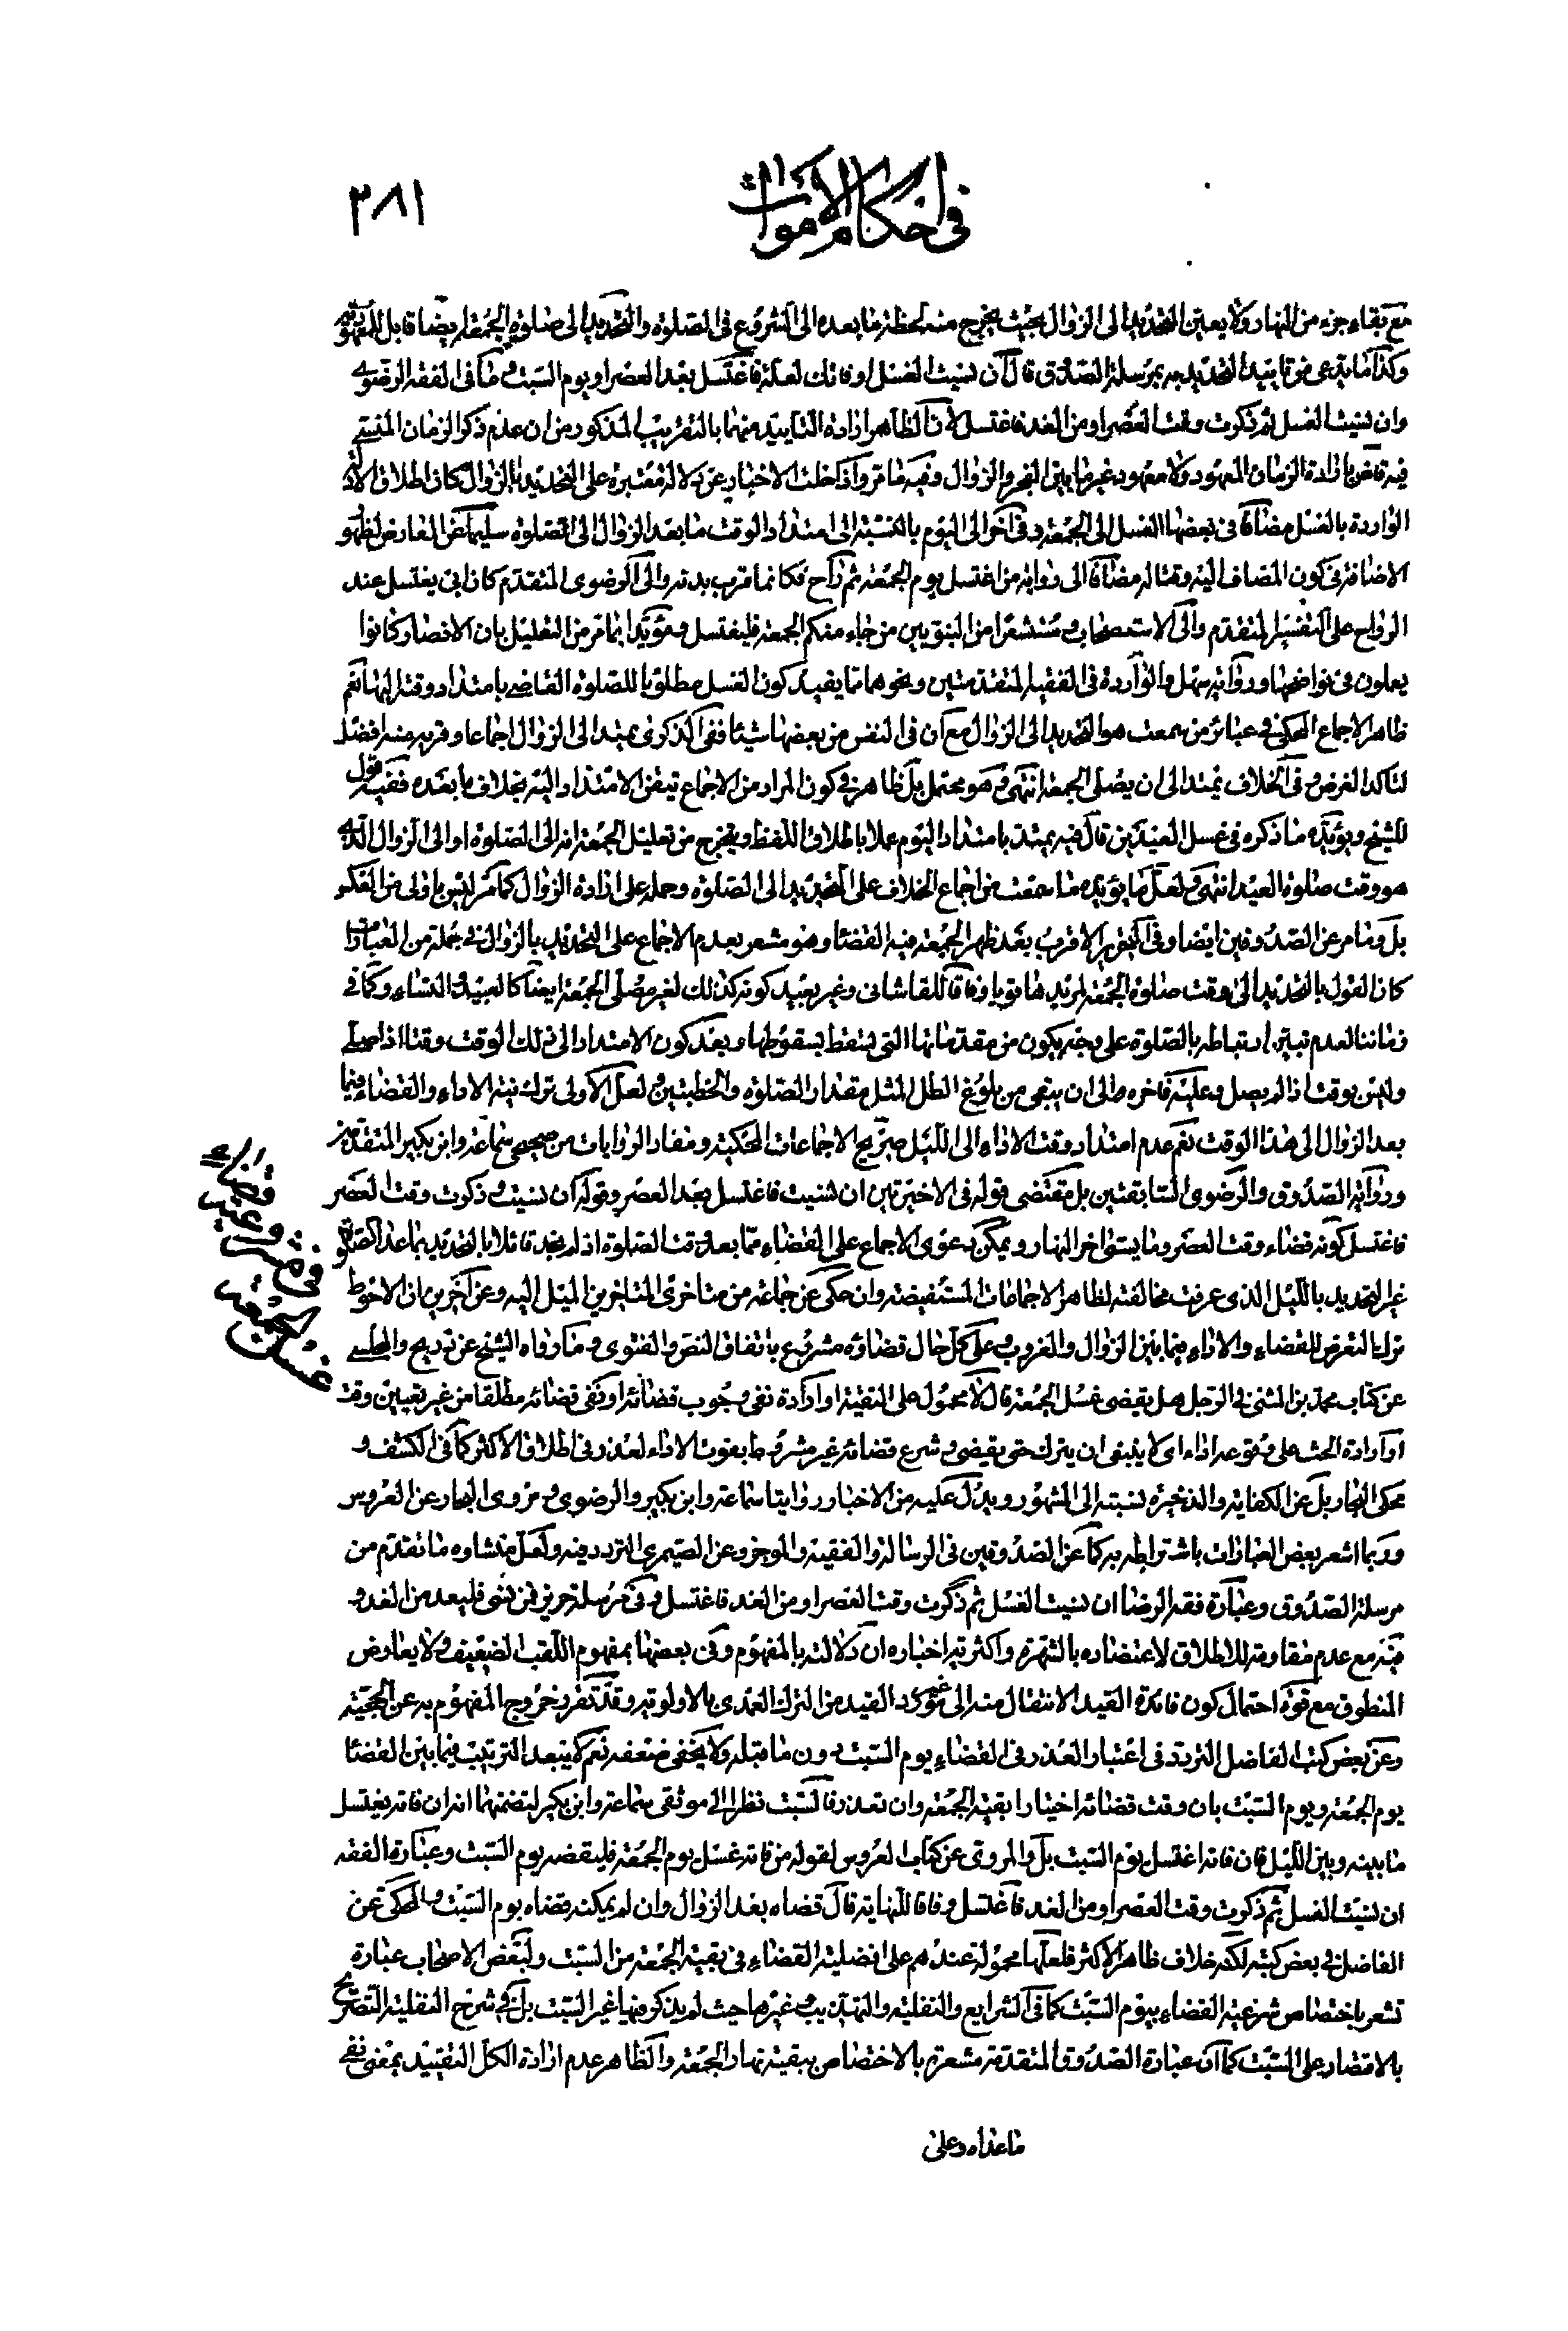 في احكام الاموات
٣٨١
مع بقاء جزء من النهار ولا يعين التحديد الى الزوال بحيث يخرج منه لحظة ما بعده الى الشروع في الصلوة والتحديد الى صلوة الجمعة ايضا قابل للمعهودية
وكذا ما يدعى من تأييد التحديد به بمرسلة الصدوق قال ان نسيت الغسل او فاتك لعلة فاغتسل بعد العصر او يوم السبت وما في الفقه الرضوي
وان نسيت الغسل ثم ذكرت وقت العصر او من الغد فاغتسل لان الظاهر ارادة التأييد منهما بالتقريب المذكور من ان عدم ذكر الزمان المنسي
فيه قاض بارادة الزمان المعهود ولا معهود غير ما بين الفجر والزوال وفيه ما مر واذ اخلت الاخبار عن دلالة معتبرة على التحديد بالزوال كان اطلاق الاخبار
الواردة بالغسل مضافا في بعضها الغسل الى الجمعة وفي اخرى الى اليوم بالنسبة الى امتداد الوقت ما بعد الزوال الى الصلوة سليما عن المعارض لظهور
الاضافة في كون المضاف اليه وقتا له مضافا الى رواية من اغتسل يوم الجمعة ثم راح فكانما قرب بدنة والى الرضوي المتقدم كان ابي يغتسل عند
الرواح على التفسير المتقدم والى الاستصحاب ومستشعرا من النبويين من جاء منكم الجمعة فليغتسل ومؤيدا بما مر من التعليل بان الانصار كانوا
يعملون في نواضحها ورواية سهل والواردة في الفقيه المتقدمتين ونحوهما مما يفيد كون الغسل مطلوبا للصلوة القاضي بامتداد وقته اليها نعم
ظاهر الاجماع المحكي في عبائر من سمعت هو التحديد الى الزوال مع ان في النفس من بعضها شيئا ففي الذكرى يمتد الى الزوال اجماعا وقربه منه افضل
لتأكد الغرض وفي الخلاف يمتد الى ان يصلى الجمعة انتهى وهو محتمل بل ظاهر في كون المراد من الاجماع تيقن الامتداد اليه بخلاف ما بعده ففيه قول
للشيخ ويؤيده ما ذكره في غسل العيدين قال فيه يمتد بامتداد اليوم عملا باطلاق اللفظ ويخرج من تعليل الجمعة انه الى الصلوة او الى الزوال الذي
هو وقت صلوة العيد انتهى ولعل ما يؤيده ما سمعت من اجماع الخلاف على التحديد الى الصلوة وحمله على ارادة الزوال كما مر ليس باولى من العكس
بل وما مر عن الصدوقين ايضا وفي التحرير الاقرب بعد ظهر الجمعة فيه القضاء وهو مشعر بعدم الاجماع على التحديد بالزوال في جملة من العبارات
كان القول بالتحديد الى وقت صلوة الجمعة لمريدها قويا وفاقا للقاشاني وغير بعيد كونه كذلك لغير مصلى الجمعة ايضا كالعبيد والنساء وكما في
زماننا لعدم تبين ارتباطه بالصلوة على وجه يكون من مقدماتها التي يسقط بسقوطها وبعد كون الامتداد الى ذلك الوقت وقتا اذا صلى
وليس بوقت اذا لم يصل وعليه فاخره الى ان يبقى من بلوغ الظل المثل مقدار الصلوة والخطبتين ولعل الاولى ترك نية الاداء والقضاء فيما
بعد الزوال الى هذا الوقت نعم عدم امتداد وقت الاداء الى الليل صريح الاجماعات المحكية ومفاد الروايات من صحيحي سماعة وابن بكير المتقدمين
ورواية الصدوق والرضوي السابقتين بل مقتضى قوله في الاخيرتين ان نسيت فاغتسل بعد العصر وقوله ان نسيت وذكرت وقت العصر
فاغتسل كونه قضاء وقت العصر وما يستوي اخر النهار ويمكن دعوى الاجماع على القضاء مما بعد وقت الصلوة اذ لم يجد قائلا بالتحديد بما عدا الصلوة
غير التحديد بالليل الذى عرفت مخالفته لظاهر الاجماعات المستفيضة وان حكى عن جماعة من متأخري المتأخرين الميل اليه وعن آخرين ان الاحوط
ترك التعرض للقضاء والاداء فيما بين الزوال والغروب وعلى كل حال قضاؤه مشروع باتفاق النص والفتوى وما رواه الشيخ عن ذريح والمجلسي
عن كتاب محمد بن المثنى في الرجل هل يقضى غسل الجمعة قال لا محمول على التقية او ارادة نفي وجوب قضائه او نفى قضائه مطلقا من غير تعيين وقت
او ارادة الحث على وقوعه اداء اى لا ينبغى ان يترك حتى يقضى وشرع قضائه غير مشروط بفوت الاداء لعذر في اطلاق الاكثر كما في الكشف و
محكى البحار بل عن الكفاية والذخيرة نسبته الى المشهور ويدل عليه من الاخبار روايتا سماعة وابن بكير والرضوي ومروى البحار عن العروس
وربما اشعر بعض العبارات باشتراطه به كما عن الصدوقين في الرسالة والفقيه والموجز وعن الصيمري التردد فيه ولعل منشاوه ما تقدم من
مرسلة الصدوق وعبارة فقه الرضا ان نسيت الغسل ثم ذكرت وقت العصر او من الغد فاغتسل وفي مرسلة حريز فمن نسى فليعد من الغد و
فيه مع عدم مقاومته للاطلاق لاعتضاده بالشهرة واكثرية اخباره ان دلالته بالمفهوم وفي بعضها بمفهوم اللقب الضعيف ولا يعارض
المنطوق مع قوة احتمال كون فائدة القيد الانتقال منه الى غير مورد القيد من الترك العمدي بالاولوية وقد تقرر خروج المفهوم به عن الحجية
وعن بعض كتب الفاضل التردد في اعتبار العذر في القضاء يوم السبت دون ما قبله ولا يخفى ضعفه نعم لا يبعد الترتيب فيما بين القضاء
يوم الجمعة ويوم السبت بان وقت قضائه اختيارا بقية الجمعة وان تعذر فالسبت نظرا الى موثقى سماعة وابن بكير لتضمنهما انه ان فاته يغتسل
ما بينه وبين الليل فان فاته اغتسل يوم السبت بل والمروى عن كتاب العروس لقوله من فاته غسل يوم الجمعة فليقضه يوم السبت وعبارة الفقه
ان نسيت الغسل ثم ذكرت وقت العصر او من الغد فاغتسل وفاقا للنهاية قال قضاه بعد الزوال وان لم يمكنه قضاه يوم السبت والمحكى عن
الفاضل في بعض كتبه لكنه خلاف ظاهر الاكثر فلعلها محمولة عندهم على افضلية القضاء في بقية الجمعة من السبت ولبعض الاصحاب عبارة
تشعر باختصاص شرعية القضاء بيوم السبت كما في الشرايع والنفلية والتهذيب وغيرها حيث لم يذكر فيها غير السبت بل في شرح النفلية التصريح
بالاقتصار على السبت كما ان عبارة الصدوق المتقدمة مشعرة بالاختصاص ببقية نهار الجمعة والظاهر عدم ارادة الكل التقييد بمعنى نفى
ما عداه وعلى
قضاء
غسل الجمعة